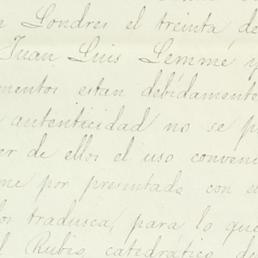 n Londres el treinta, de
Juan Luis Lemme y
mentos estan debidamente
autenticidad no se p
er de ellos el uso conveni
me por presentada con e
los tradusca, para lo que
l Rubio, catedrático de